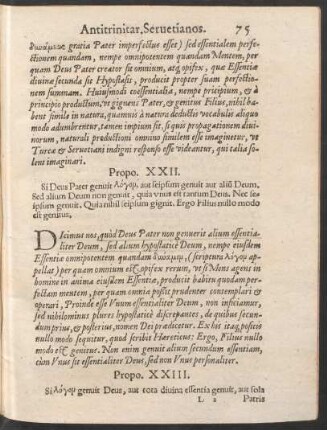 Antitrinitar. Seruetianos. 75
δυνάμεως gratia Pater imperfectus esset) sed essentialem perfe-
ctionem quandam, nempe omnipotentem quandam Mentem, per
quam Deus Pater creator fit omnium, atq; opifex, quæ Essentiæ
diuinæ secunda sit Hypostasis, producit propter suam perfectio-
nem summam. Huiusmodi coessentialia, nempe principium, & à
principio productum, vt gignens Pater, & genitus Filius, nihil ha-
bent simile in natura, quamuis à natura deductis vocabulis aliquo
modo adumbrentur, tamen impium sit, si quis propagationem diui-
norum, naturali productioni omnino similem esse imaginetur, vt
Turcæ & Seruetiani indigni responso esse videantur, qui talia so-
lent imaginari.
Propo. XXII.
Si Deus Pater genuit λόγον, aut seipsum genuit aut aliũ Deum.
Sed alium Deum non genuit, quia vnus est tantum Deus. Nec se-
ipsum genuit. Quia nihil seipsum gignit. Ergo Filius nullo modo
est genitus.
Dicimus nos, quòd Deus Pater non genuerit alium essentia-
liter Deum, sed alium hypostaticè Deum, nempe eiusdem
Essentiæ omnipotentem quandam δύναμιν, (scriptura λόγον ap-
pellat) per quam omnium est opifex rerum, vt si Mens agens in
homine in anima eiusdem Essentiæ, producit habitu quodam per-
fectam mentem, per quam omnia possit prudenter contemplari &
operari, Proinde esse Vnum essentialiter Deum, non inficiamur,
sed nihilominus plures hypostaticè discrepantes, de quibus secun-
dum prius, & posterius, nomen Dei prædicetur. Ex his itaq; poscio
nullo modo sequitur, quod scribit Hæreticus: Ergo, Filius nullo
modo est genitus. Non enim genuit alium secundum essentiam,
cùm Vnus sit essentialiter Deus, sed non Vnus personaliter.
Propo. XXIII.
Si λόγον genuit Deus, aut tota diuina essentia genuit, aut sola
L 2 Patris